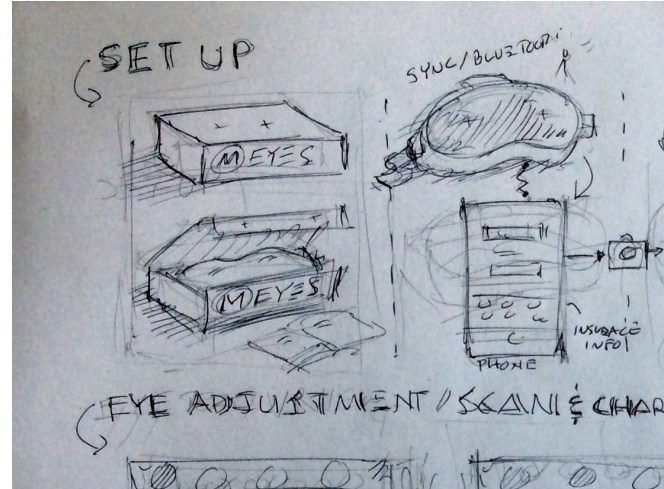 SET UP
SYNC/BLUETOOTH
(M)EYES
(M)EYES
INSURACE
INFO
PHONE
EYE ADJUSTMENT / SCAN & CHAR